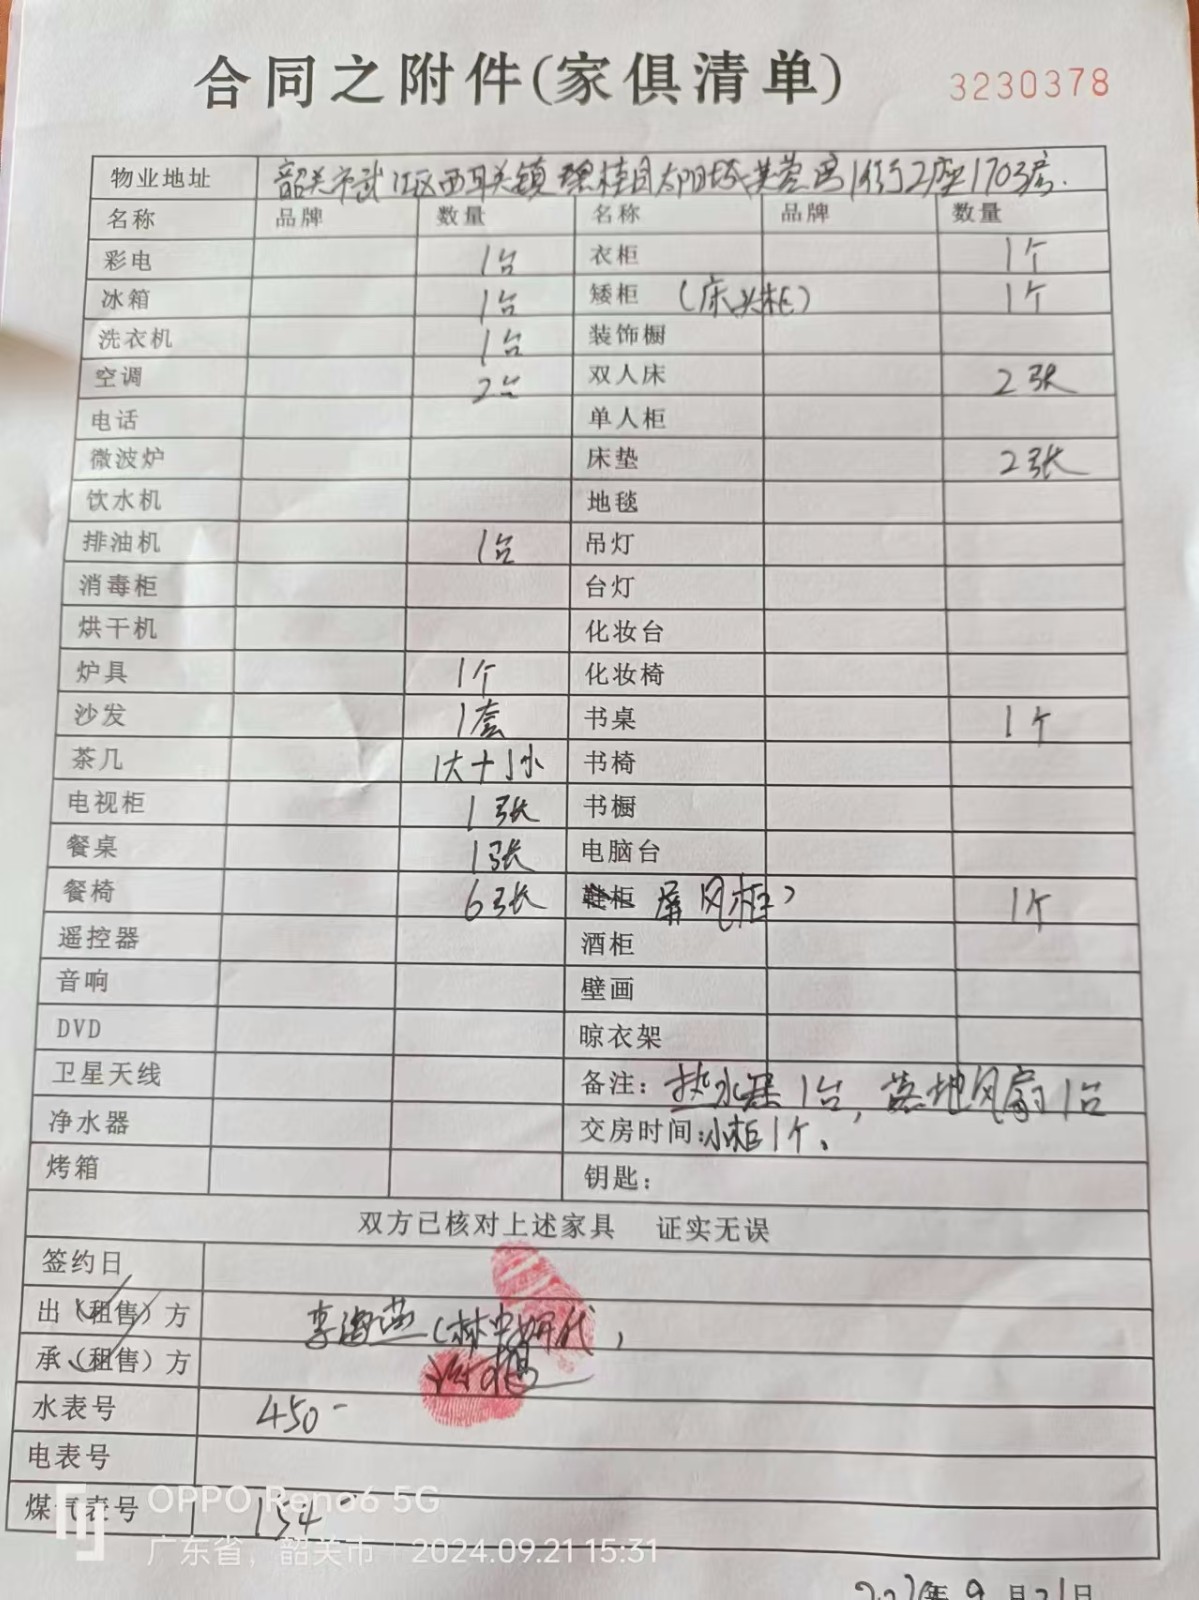 合同之附件(家俱清单) 3230378
物业地址 韶关市武江区西联镇碧桂园太阳城芙蓉湾1街2座1703房.
名称 品牌 数量 名称 品牌 数量
彩电 1台 衣柜 1个
冰箱 1台 矮柜 (床头柜) 1个
洗衣机 1台 装饰橱
空调 2台 双人床 2张
电话 单人柜
微波炉 床垫 2张
饮水机 地毯
排油机 1台 吊灯
消毒柜 台灯
烘干机 化妆台
炉具 1个 化妆椅
沙发 1套 书桌 1个
茶几 1大+1小 书椅
电视柜 1张 书橱
餐桌 1张 电脑台
餐椅 6张 鞋柜 屏风柜) 1个
遥控器 酒柜
音响 壁画
DVD 晾衣架
卫星天线 备注: 热水器1台, 落地风扇1台
净水器 交房时间: 小柜1个.
烤箱 钥匙:
双方已核对上述家具 证实无误
签约日
出(租售)方 李海燕(林
承(租售)方
水表号 450-
电表号
煤气表号 154
OPPO Reno6 5G
广东省, 韶关市 | 2024.09.21 15:31
年9月21日